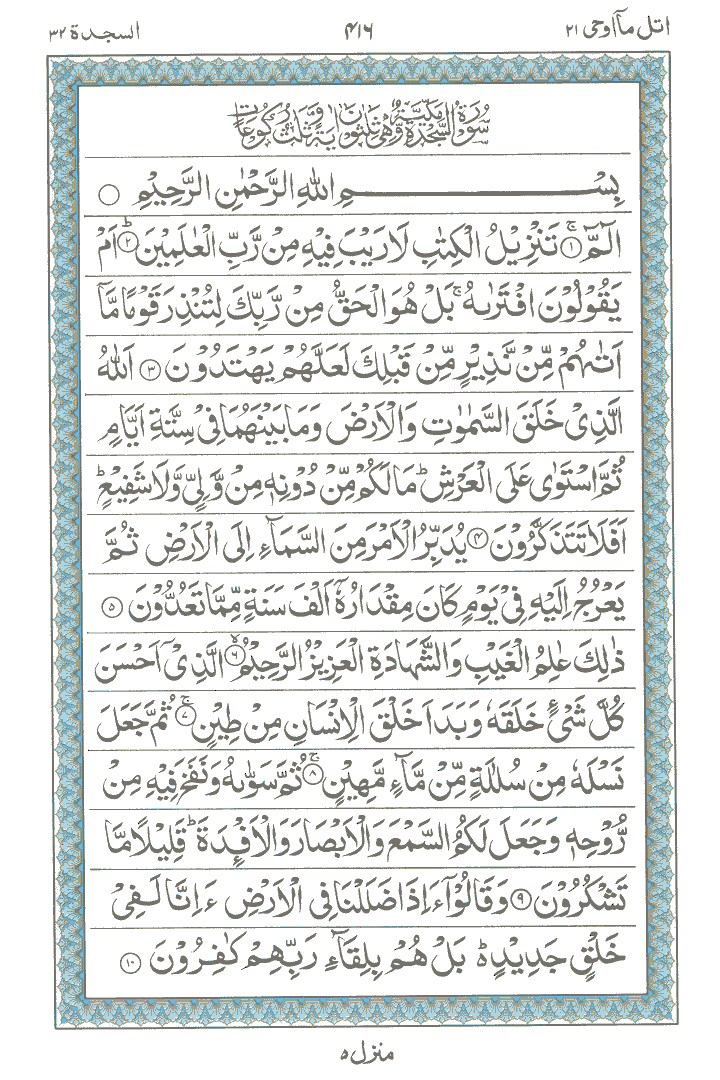 اتل مآ اوحی ۲۱ ۴۱۶ السجدة ۳۲
سُوْرَةُ السَّجْدَةِ مَكِّيَّةٌ وَّهِيَ ثَلٰثُوْنَ اٰيَةً وَّثَلٰثُ رُكُوْعَاتٍ
بِسْمِ اللّٰهِ الرَّحْمٰنِ الرَّحِيْمِ ○
الٓمّٓ ۚ﴿۱﴾ تَنْزِيْلُ الْكِتٰبِ لَا رَيْبَ فِيْهِ مِنْ رَّبِّ الْعٰلَمِيْنَ ؕ﴿۲﴾ اَمْ
يَقُوْلُوْنَ افْتَرٰىهُ ۚ بَلْ هُوَ الْحَقُّ مِنْ رَّبِّكَ لِتُنْذِرَ قَوْمًا مَّاۤ
اَتٰىهُمْ مِّنْ نَّذِيْرٍ مِّنْ قَبْلِكَ لَعَلَّهُمْ يَهْتَدُوْنَ ﴿۳﴾ اَللّٰهُ
الَّذِيْ خَلَقَ السَّمٰوٰتِ وَالْاَرْضَ وَمَا بَيْنَهُمَا فِيْ سِتَّةِ اَيَّامٍ
ثُمَّ اسْتَوٰى عَلَى الْعَرْشِ ؕ مَا لَكُمْ مِّنْ دُوْنِهٖ مِنْ وَّلِيٍّ وَّلَا شَفِيْعٍ ؕ
اَفَلَا تَتَذَكَّرُوْنَ ﴿۴﴾ يُدَبِّرُ الْاَمْرَ مِنَ السَّمَآءِ اِلَى الْاَرْضِ ثُمَّ
يَعْرُجُ اِلَيْهِ فِيْ يَوْمٍ كَانَ مِقْدَارُهٗۤ اَلْفَ سَنَةٍ مِّمَّا تَعُدُّوْنَ ﴿۵﴾
ذٰلِكَ عٰلِمُ الْغَيْبِ وَالشَّهَادَةِ الْعَزِيْزُ الرَّحِيْمُ ۙ﴿۶﴾ الَّذِيْۤ اَحْسَنَ
كُلَّ شَيْءٍ خَلَقَهٗ وَبَدَاَ خَلْقَ الْاِنْسَانِ مِنْ طِيْنٍ ۚ﴿۷﴾ ثُمَّ جَعَلَ
نَسْلَهٗ مِنْ سُلٰلَةٍ مِّنْ مَّآءٍ مَّهِيْنٍ ۚ﴿۸﴾ ثُمَّ سَوّٰىهُ وَنَفَخَ فِيْهِ مِنْ
رُّوْحِهٖ وَجَعَلَ لَكُمُ السَّمْعَ وَالْاَبْصَارَ وَالْاَفْـِٕدَةَ ؕ قَلِيْلًا مَّا
تَشْكُرُوْنَ ﴿۹﴾ وَقَالُوْۤا ءَاِذَا ضَلَلْنَا فِي الْاَرْضِ ءَاِنَّا لَفِيْ
خَلْقٍ جَدِيْدٍ ؕ۬ بَلْ هُمْ بِلِقَآءِ رَبِّهِمْ كٰفِرُوْنَ ﴿۱۰﴾
منزل ۵